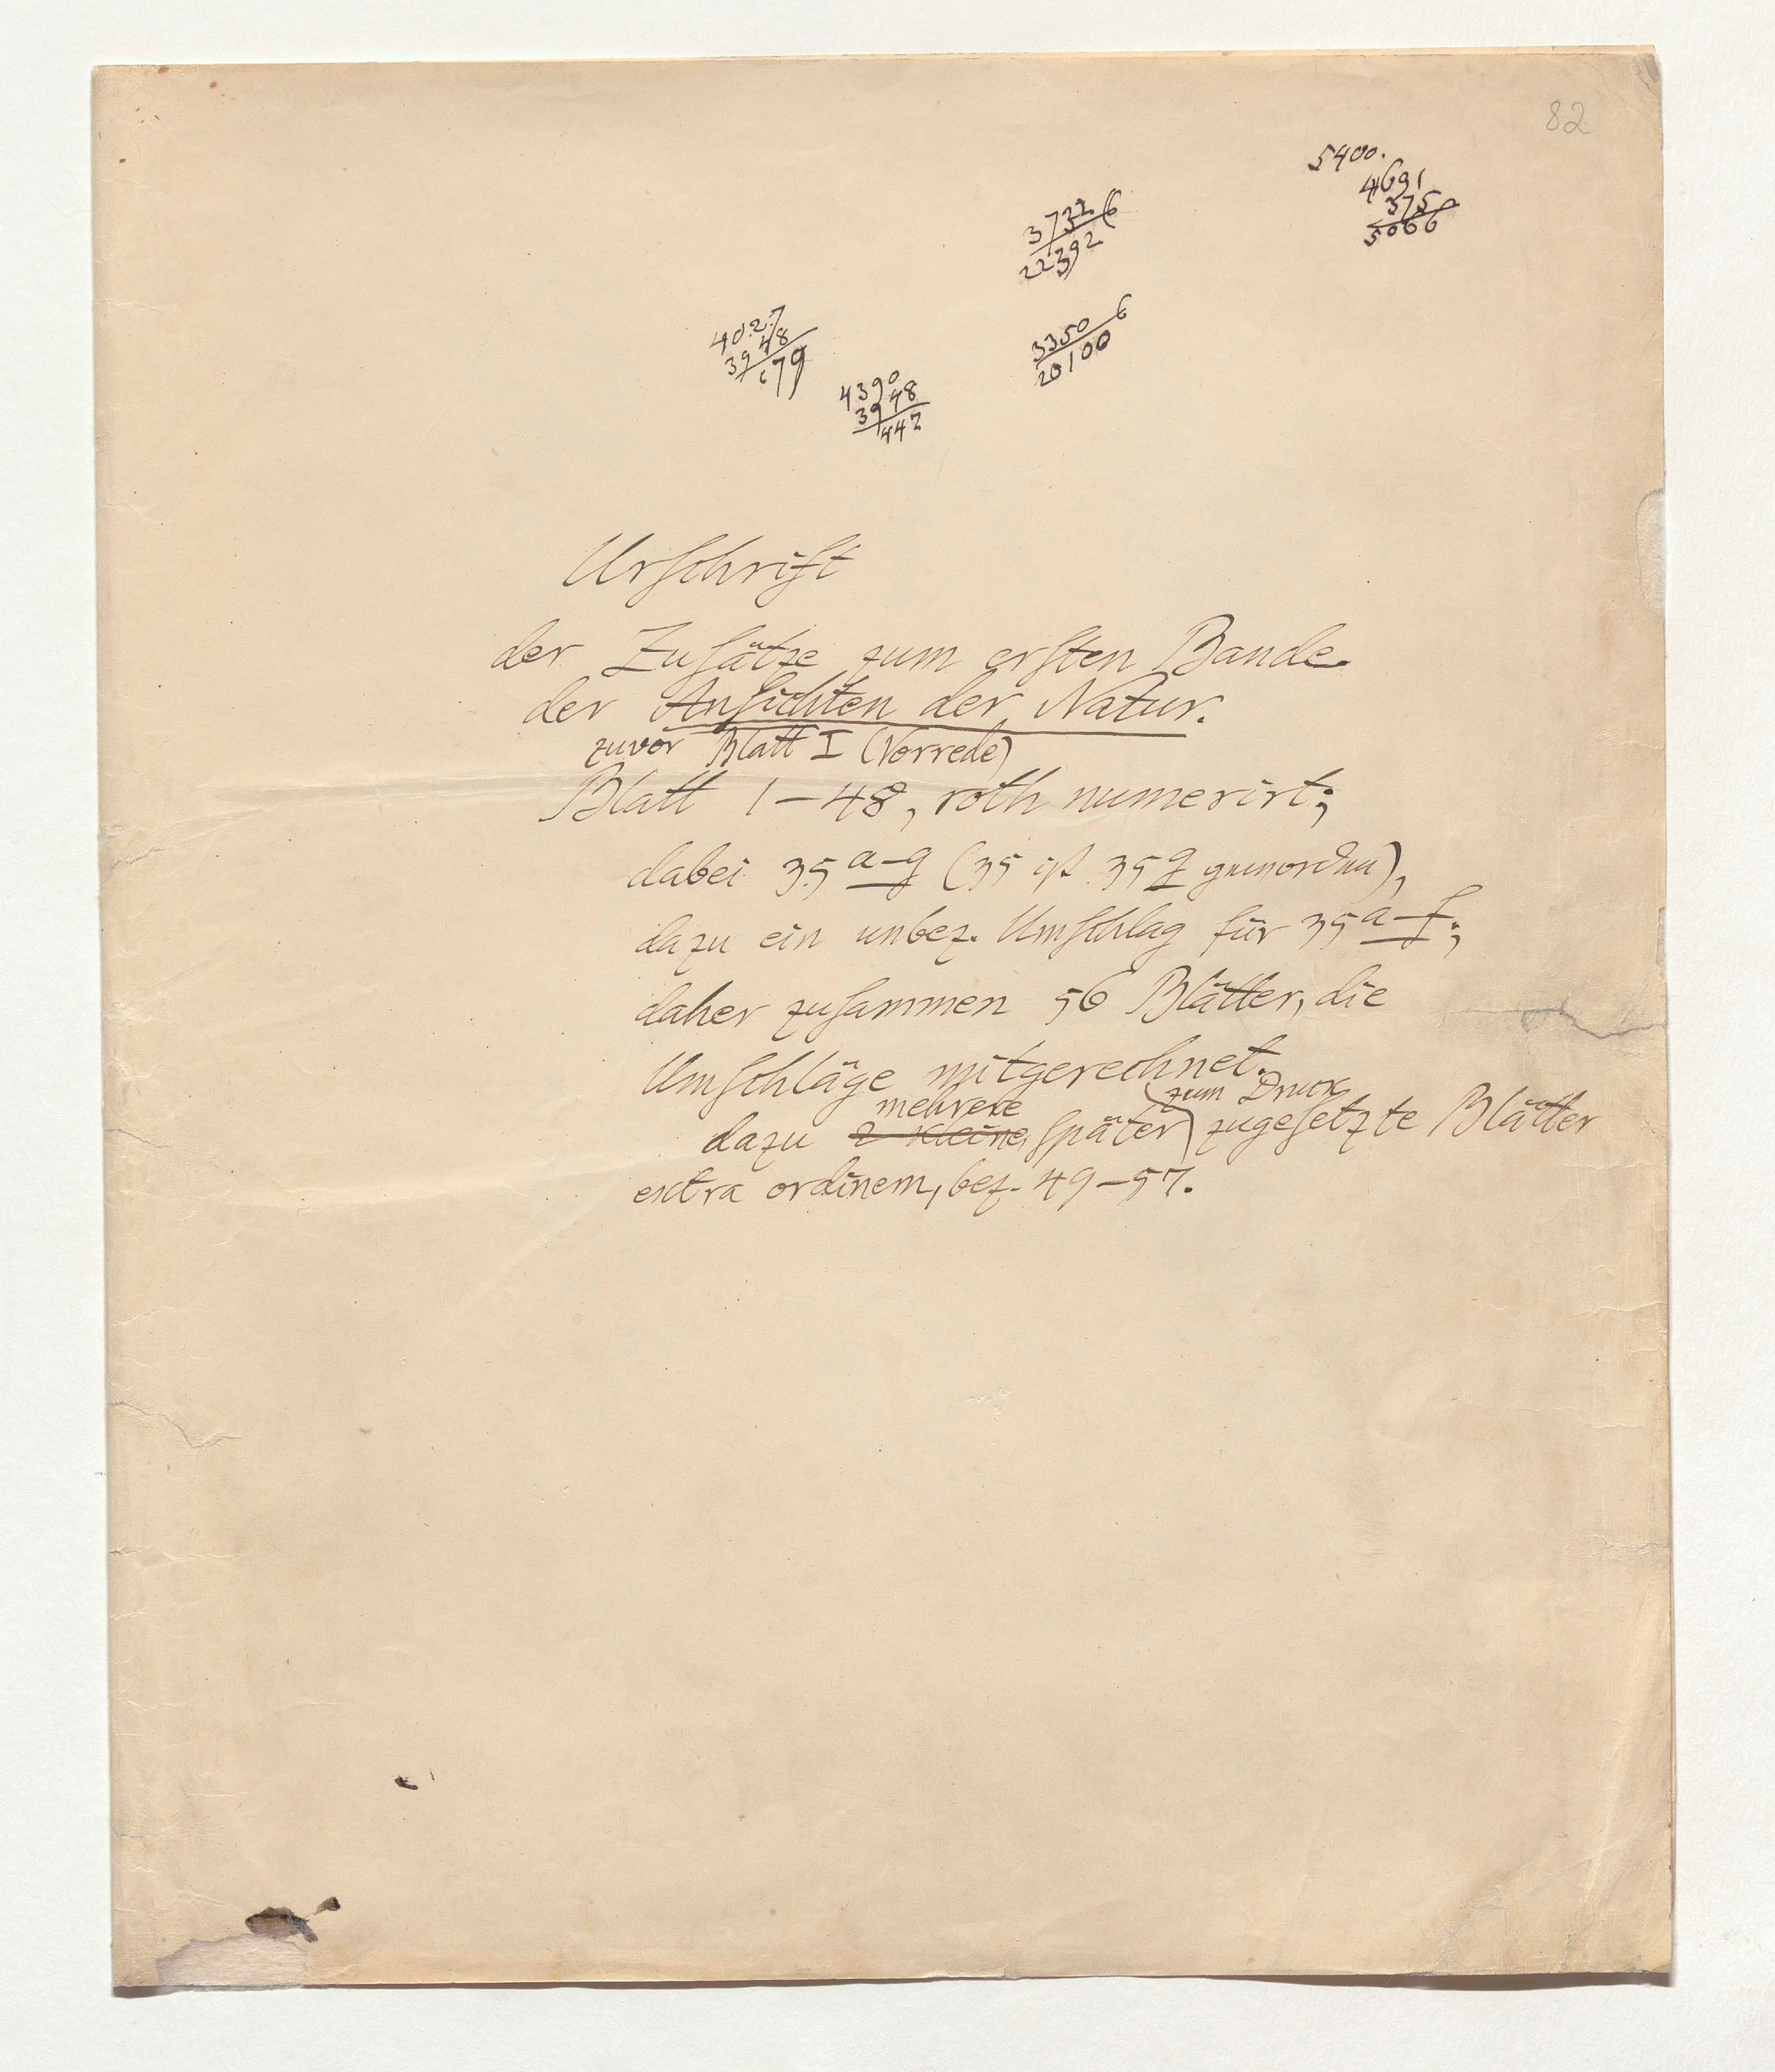 82
5400.
4691
375
5066
3732 6
22392
3350 6
20100
4027
3948
79
4390
3948
442
Urschrift
der Zusätze zum ersten Bande
der Ansichten der Natur.
zuvor Blatt I (Vorrede)
Blatt 1–48, roth numerirt;
dabei 35 a–g (35 ist 35 g geworden),
dazu ein unbez. Umschlag für 35 a–f;
daher zusammen 56 Blätter, die
Umschläge mitgerechnet.
mehrere zum Druck
dazu 2 kleine später zugesetzte Blätter
extra ordinem, bez. 49–57.